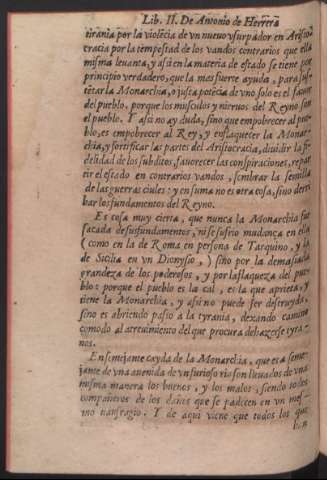 Lib. II. De Antonio de Herrera
tirania por la violẽcia de vn nueuo vsurpador en Aristo
cracia por la tempestad de los vandos contrarios que ella
misma leuanta, y assi en la materia de estado se tiene por
principio verdadero, que la mas fuerte ayuda, para sus-
tẽtar la Monarchia, o justa potẽcia de vno solo es el fauor
del pueblo, porque los musculos y nieruos del Reyno son
el pueblo. Y assi no ay duda, sino que empobrecer al pue-
blo, es empobrecer al Rey, y enflaquecer la Monar-
chia, y fortificar las partes del Aristocracia, diuidir la fi-
delidad de los subditos, fauorecer las conspiraciones, repar
tir el estado en contrarios vandos, sembrar la semilla
de las guerras ciuiles: y en suma no es otra cosa, sino derri
bar los fundamentos del Reyno.
Es cosa muy cierta, que nunca la Monarchia fue
sacada de sus fundamentos, ni se sufrio mudança en ella
(como en la de Roma en persona de Tarquino, y la
de Sicilia en vn Dionysio,) sino por la demasiada
grandeza de los poderosos, y por la flaqueza del pue
blo: porque el pueblo es la cal, es la que aprieta, y
tiene la Monarchia, y assi no puede ser destruyda,
sino es abriendo passo a la tyrania, dexando camino
comodo al atreuimiento del que procura de hazerse tyra-
nos.
En semejante cayda de la Monarchia, que es a seme-
jante de vna auenida de vn furioso rio son lleuados de vna
misma manera los buenos, y los malos, siendo todos
compañeros de los daños que se padecen en vn mes-
mo naufragio. Y de aqui viene que todos los que